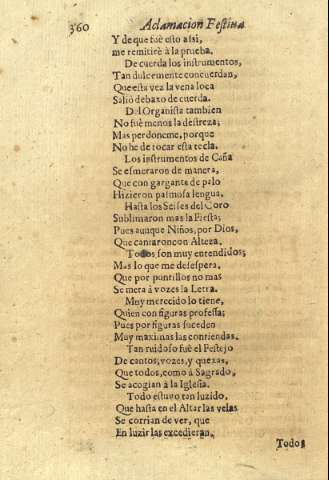 360 Aclamacion Festiua
Y de que fuè esto assi,
me remitirè à la prueba.
De cuerda los instrumentos,
Tan dulcemente concuerdan,
Que esta vez la vena loca
Saliò debaxo de cuerda.
Del Organista tambien
No fuè menos la destreza;
Mas perdoneme, porque
No he de tocar esta tecla.
Los instrumentos de Caña
Se esmeraron de manera,
Que con garganta de palo
Hizieron pasmosa lengua.
Hasta los Seises del Coro
Sublimaron mas la Fiesta;
Pues aunque Niños, por Dios,
Que cantaron con Alteza.
Todos son muy entendidos;
Mas lo que me desespera,
Que por puntillos no mas
Se mera à vozes la Letra.
Muy merecido lo tiene,
Quien con figuras professa;
Pues por figuras suceden
Muy maximas las contiendas.
Tan ruidoso fuè el Festejo
De cantos, vozes, y quexas,
Que todos, como à Sagrado,
Se acogian à la Iglesia.
Todo estuvo tan luzido,
Que hasta en el Altar las velas
Se corrian de ver, que
En luzir las excedieran.
Todos